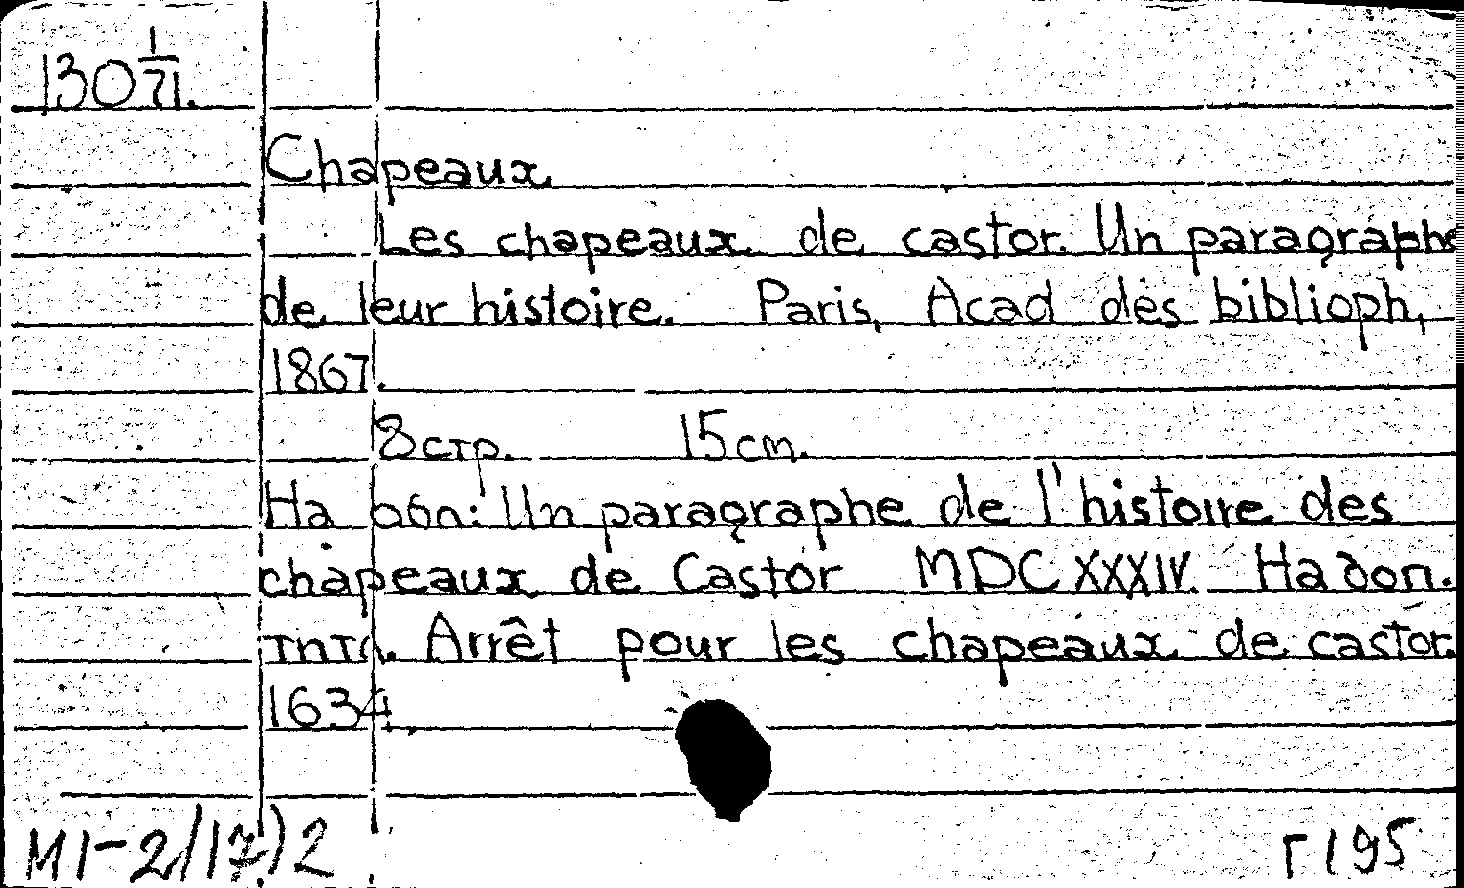 130 1/71.
Chapeaux
Les chapeaux de castor. Un paragraphe
de leur histoire. Paris, Acad des biblioph,
1867.
8 стр. 15 cm.
На обл: Un paragraphe de l'histoire des
chapeaux de Castor MDCXXXIV. На доп.
титл. Arrêt pour les chapeaux de castor.
1634
MI-2/17/2
Г 195